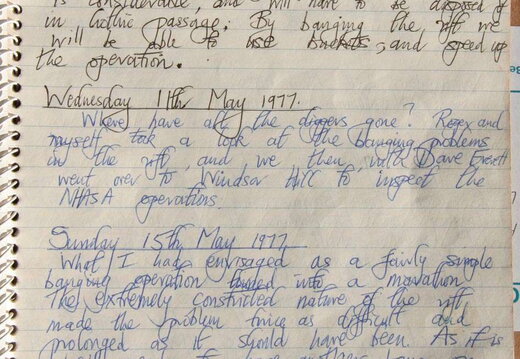 is considerable, and will have to be disposed of
in Gothic passage. By banging the rift we
will be able to use buckets, and speed up
the operation.
Wednesday 11th May 1977.
Where have all the diggers gone? Roger and
myself took a look at the banging problems
in the rift, and we then, with Dave Everett
went over to Windsor Hill to inspect the
NHASA operations.
Sunday 15th May 1977
What I had envisaged as a fairly simple
banging operation turned into a marathon.
The extremely constricted nature of the rift
made the problem twice as difficult and
prolonged as it should have been. As it is
have another